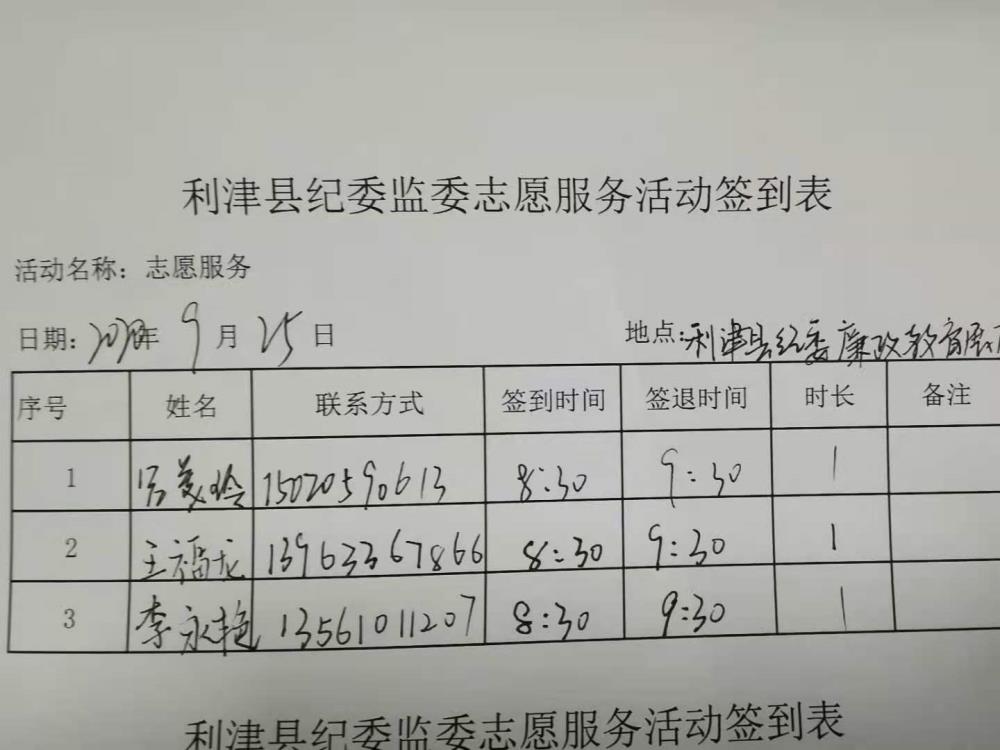 利津县纪委监委志愿服务活动签到表
活动名称：志愿服务
日期：2020年 9月 25日 地点：利津县纪委廉政教育展
序号 姓名 联系方式 签到时间 签退时间 时长 备注
1 美玲 15020590613 8:30 9:30 1
2 王福龙 13963367866 8:30 9:30 1
3 李永艳 13561011207 8:30 9:30 1
利津县纪委监委志愿服务活动签到表